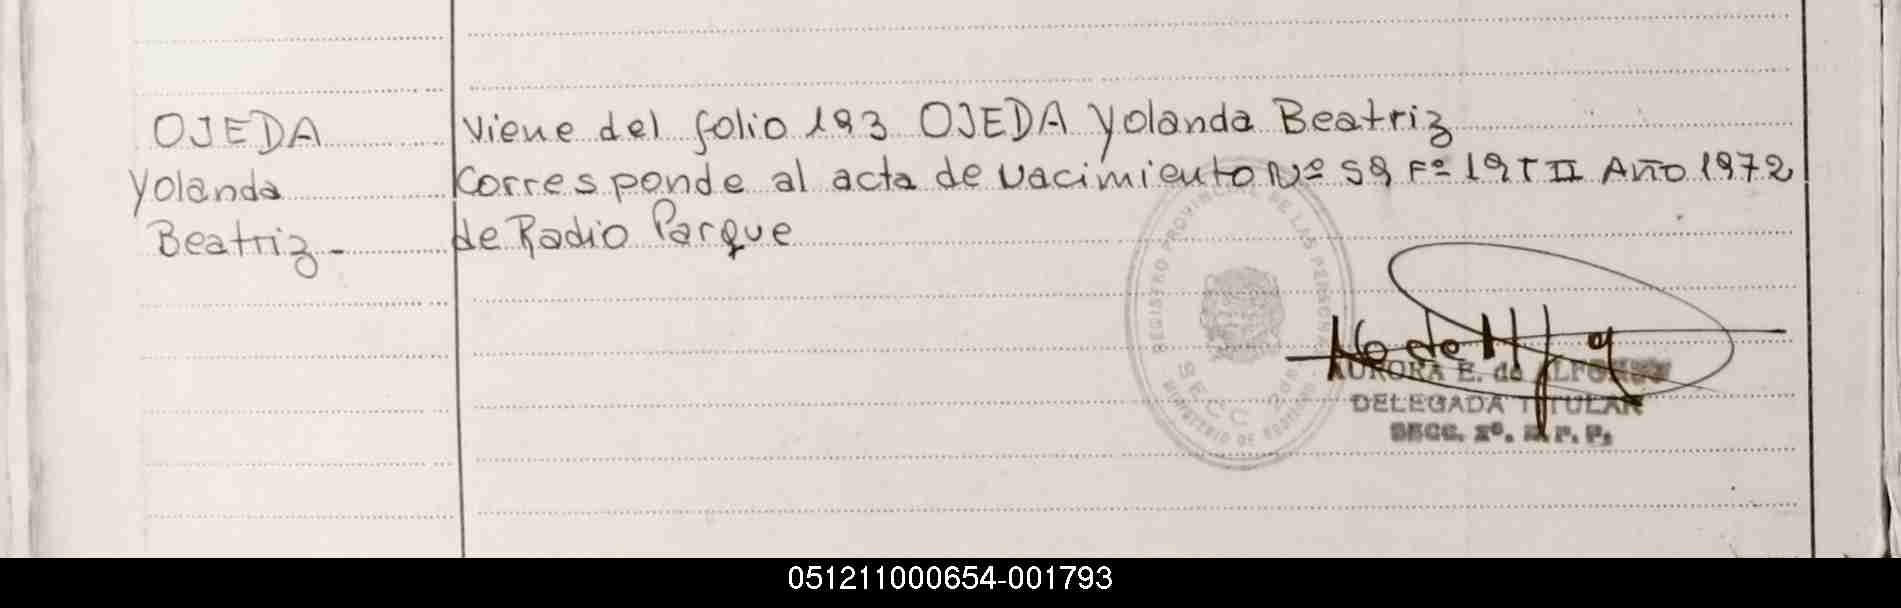 OJEDA
Yolanda
Beatriz -
Viene del folio 193 OJEDA Yolanda Beatriz
Corresponde al acta de nacimiento Nº 59 Fº 19 T II Año 1972
de Radio Parque
REGISTRO PROVINCIAL DE LAS PERSONAS
SECC.
MINISTERIO DE GOBIERNO
AURORA E. de ALFONSO
DELEGADA TITULAR
SECC. R. P. P.
051211000654-001793